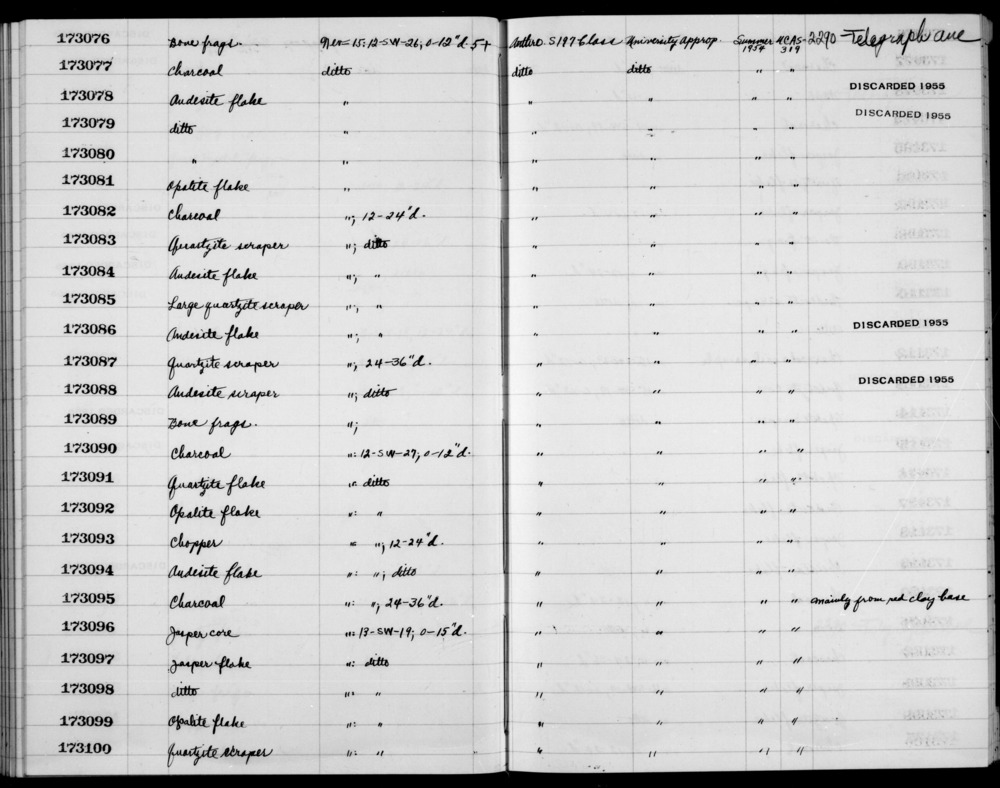 173076 Bone frags. Nev=15: 12-SW-26; 0-12"d. 5+ Anthro. S197 Class University approp. Summer 1954 UCAS-319 2290 - Telegraph ave
173077 Charcoal ditto ditto ditto " "
173078 Andesite flake " " " " " DISCARDED 1955
173079 ditto " " " " " DISCARDED 1955
173080 " " " " " "
173081 Opalite flake " " " " "
173082 Charcoal "; 12-24"d. " " " "
173083 Quartzite scraper "; ditto " " " "
173084 Andesite flake "; " " " " "
173085 Large quartzite scraper "; " " " " "
173086 Andesite flake "; " " " " " DISCARDED 1955
173087 Quartzite scraper "; 24-36"d. " " " "
173088 Andesite scraper "; ditto " " " " DISCARDED 1955
173089 Bone frags. "; " " " "
173090 Charcoal ": 12-SW-27; 0-12"d. " " " "
173091 Quartzite flake ": ditto " " " "
173092 Opalite flake ": " " " " "
173093 Chopper " "; 12-24"d. " " " "
173094 Andesite flake ": "; ditto " " " "
173095 Charcoal ": "; 24-36"d. " " " " mainly from red clay base
173096 Jasper core ": 13-SW-19; 0-15"d. " " " "
173097 Jasper flake ": ditto " " " "
173098 ditto ": " " " " "
173099 Opalite flake ": " " " " "
173100 Quartzite scraper ": " " " " "